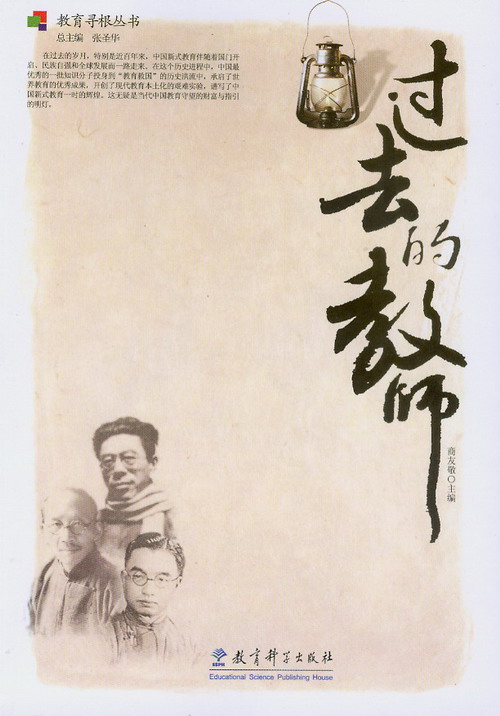 教育寻根丛书
总主编 张圣华
在过去的岁月，特别是近百年来，中国新式教育伴随着国门开
启、民族自强和全球发展而一路走来。在这个历史进程中，中国最
优秀的一批知识分子投身到“教育救国”的历史洪流中，承启了世
界教育的优秀成果，开创了现代教育本土化的艰难实验，谱写了中
国新式教育一时的辉煌。这无疑是当代中国教育守望的财富与指引
的明灯。
过去的教师
商友敬○主编
ESPH
教育科学出版社
Educational Science Publishing House